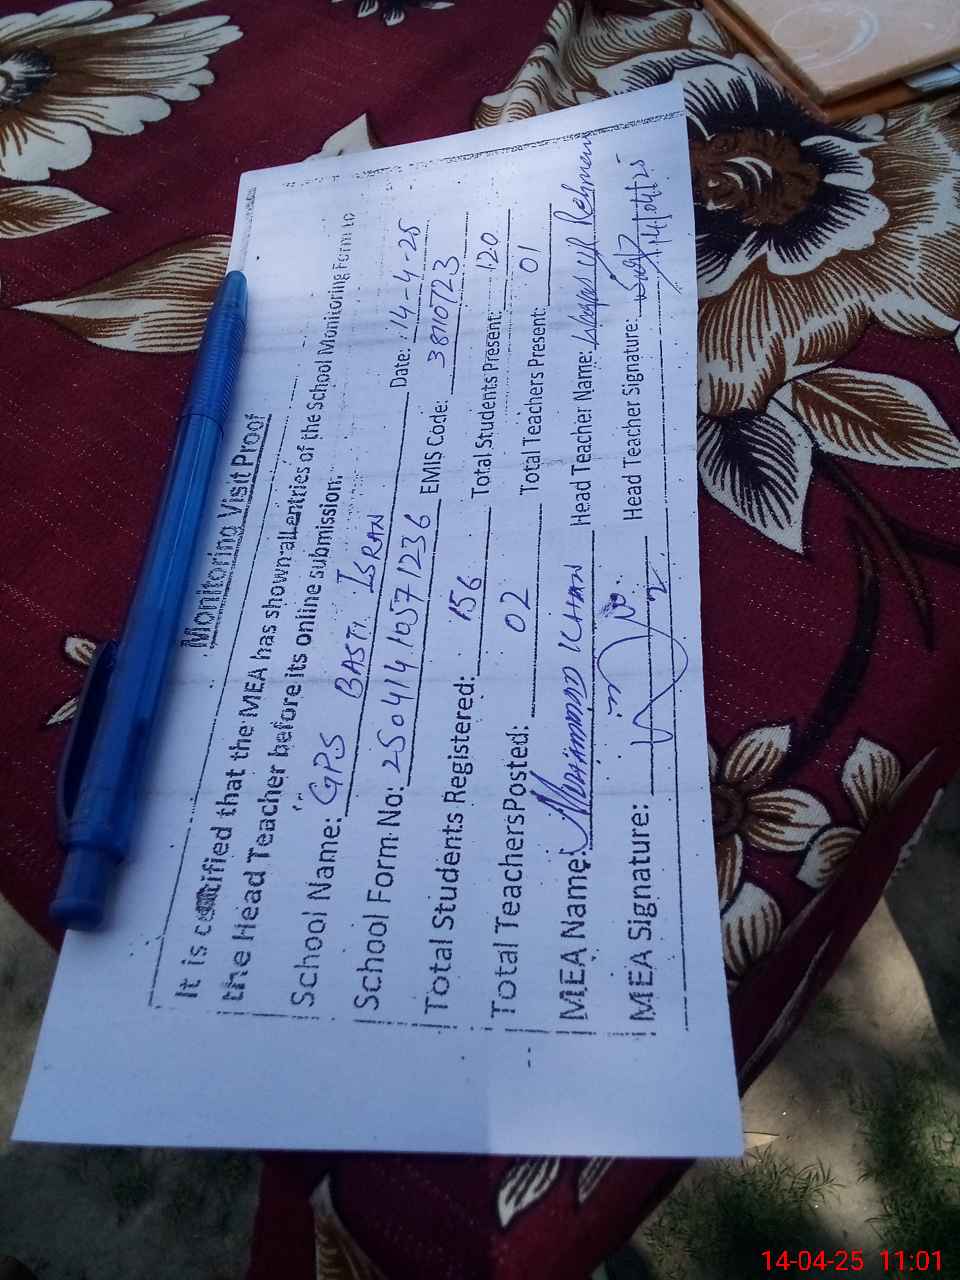 Monitoring Visit Proof
It is certified that the MEA has shown all entries of the School Monitoring Form to
the Head Teacher before its online submission.
School Name: GPS BASTI ISRAN Date: 14-4-25
School Form No: 25041410571236 EMIS Code: 38110723
Total Students Registered: 156 Total Students Present: 120
Total Teachers Posted: 02 Total Teachers Present: 01
MEA Name: Muhammad Khan Head Teacher Name: Rehman
MEA Signature: Head Teacher Signature: 14/04/25
14-04-25 11:01